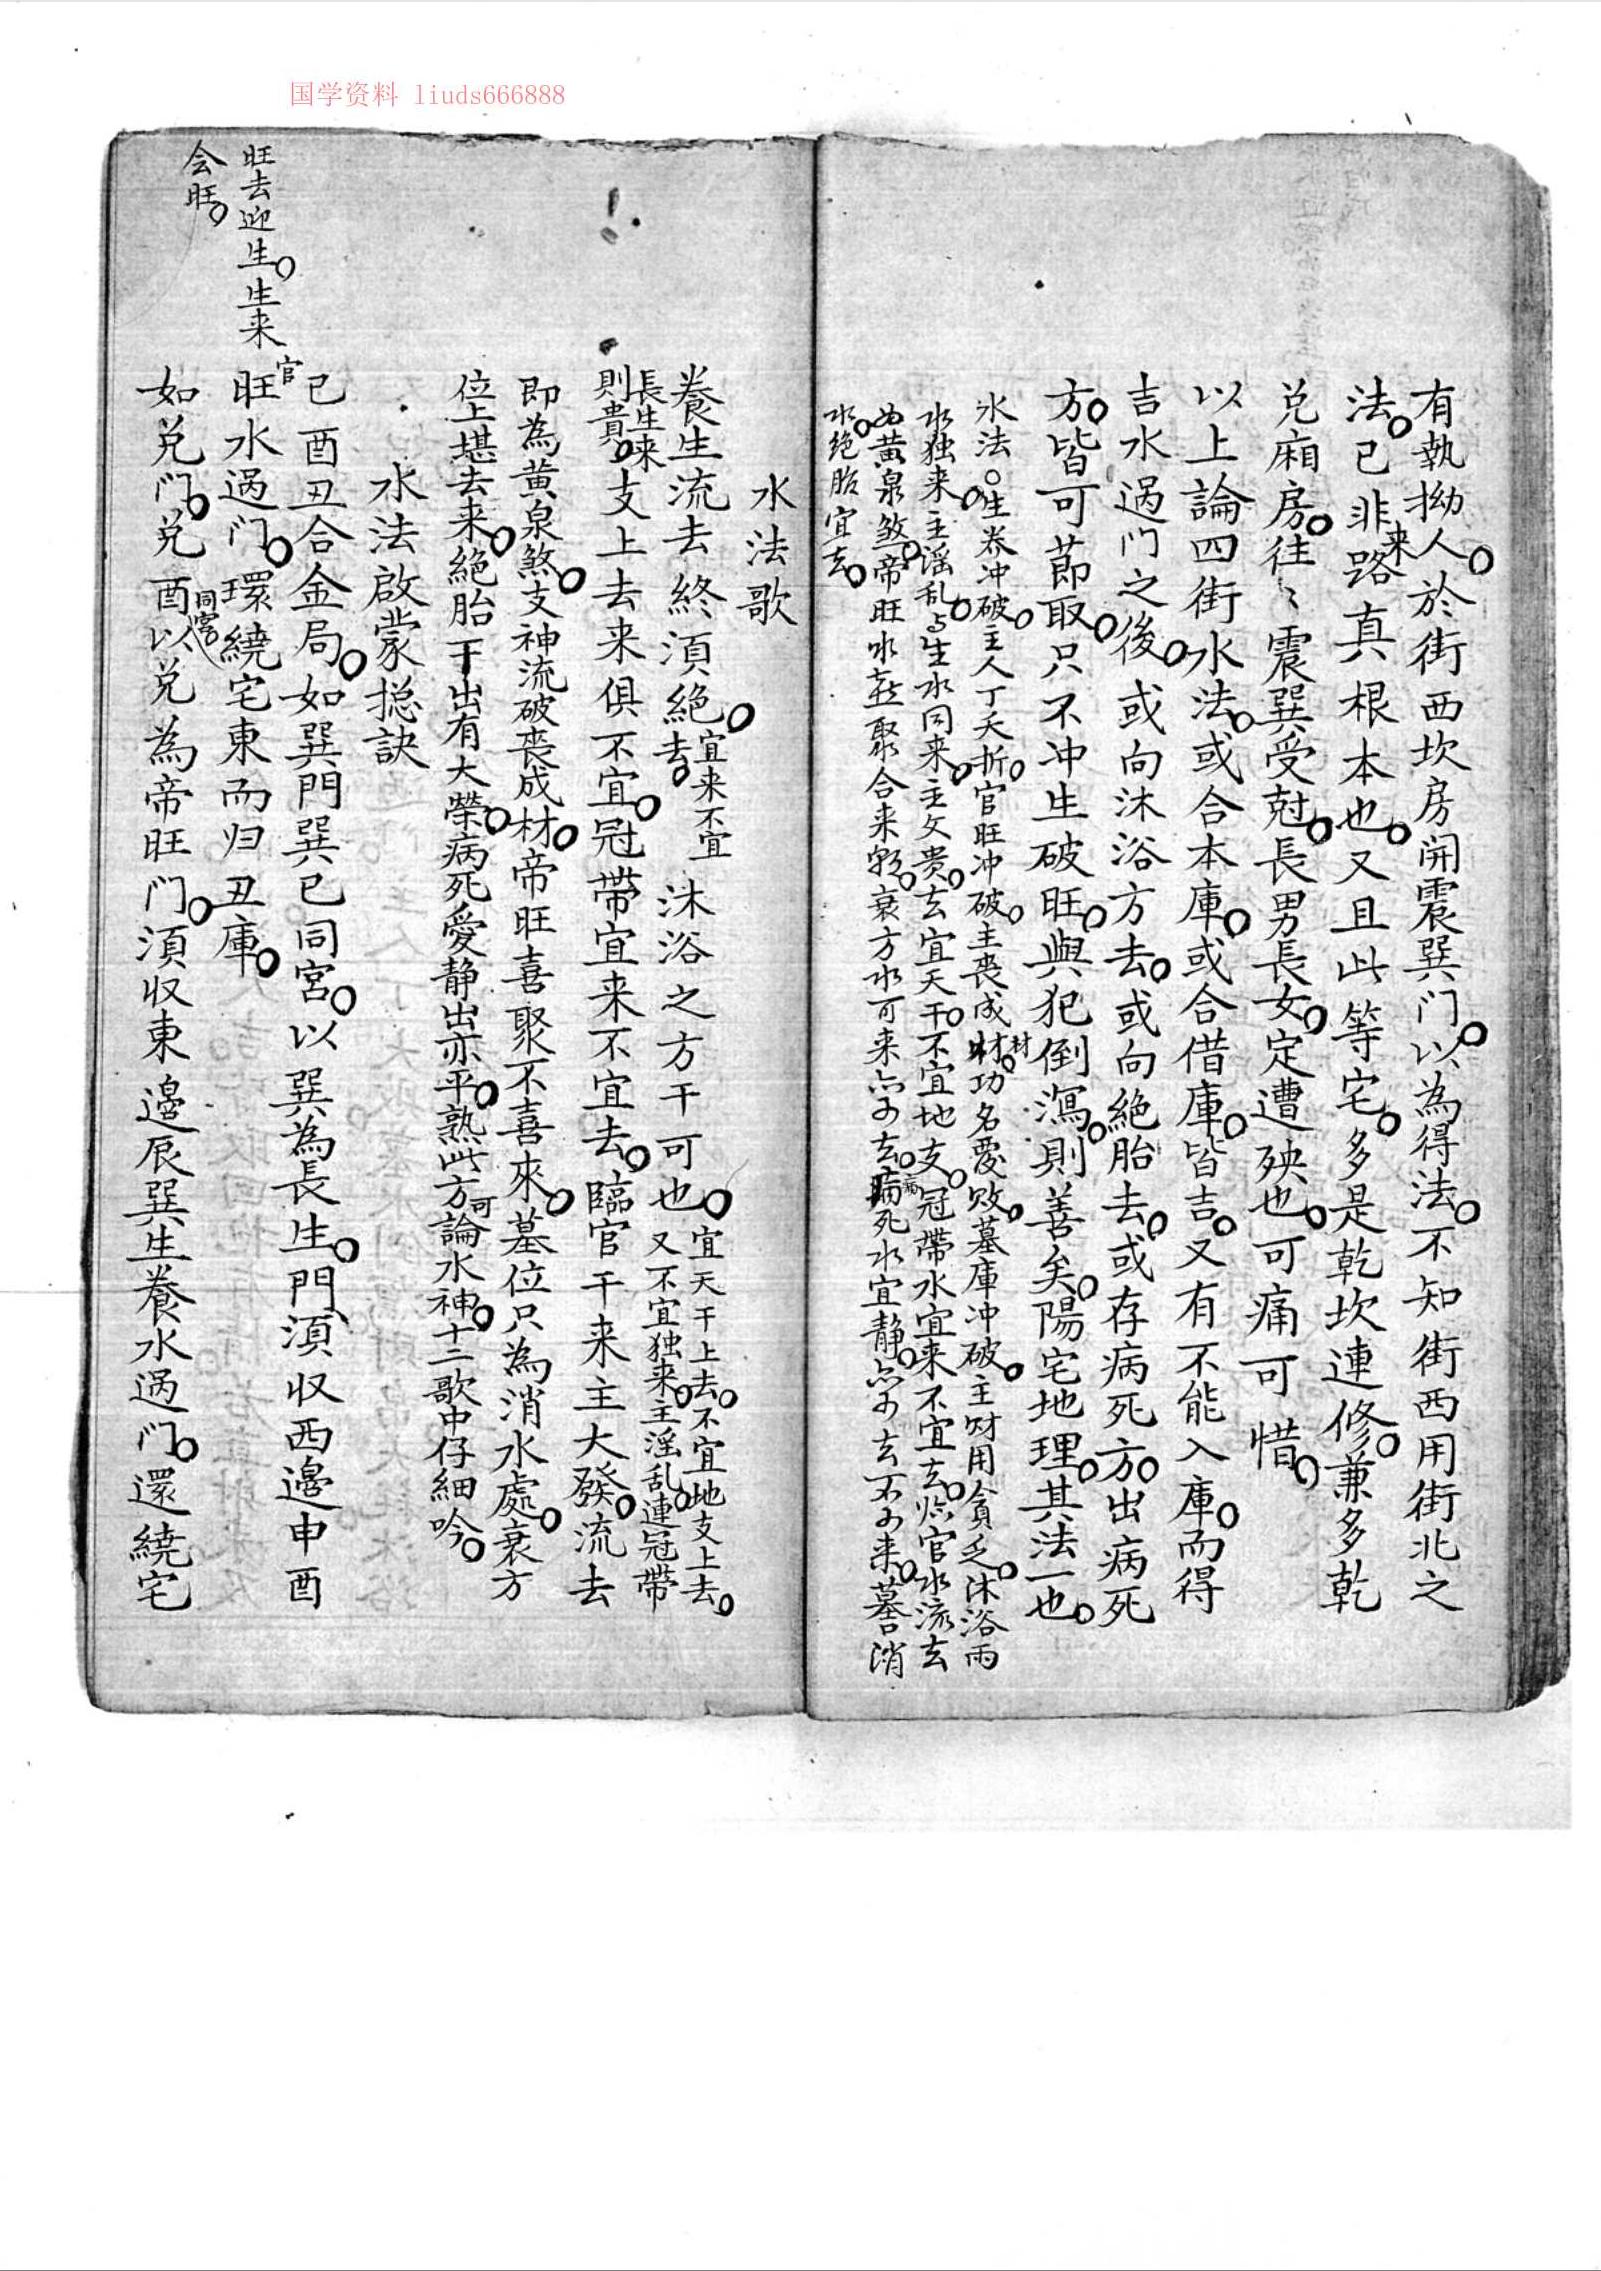 国学资料 liuds666888
有執拗人。於街西坎房開震巽门。以為得法。不知街西用街北之
法。已非来路真根本也。又且此等宅。多是乾坎連修。兼多乾
兑廂房。往〻震巽受尅。長男長女。定遭殃也。可痛可惜。
以上論四街水法。或合本庫。或合借庫。皆吉。又有不能入庫。而得
吉水過门之後。或向沐浴方去。或向絶胎去。或存病死方。出病死
方。皆可莭取。只不冲生破旺。與犯倒瀉。則善矣。陽宅地理。其法一也。
水法。生养冲破。主人丁夭折。官旺冲破。主喪成材材。功名愛敗。墓庫冲破。主財用貪乏。沐浴雨
水独来。主谣乱。与生水同来。主文贵。去宜天干。不宜地支。冠帶水宜来不宜去。临官水流去
为黄泉煞。帝旺水喜聚合来朝。衰方水可来亦可去。病病死水宜静。亦可去不可来。墓宫消
水。绝胎宜去。
水法歌
養生流去終須絕。宜来不宜去。沐浴之方干可也。宜天干上去。不宜地支上去。又不宜独来。主淫乱。連冠帶
長生来則貴。支上去来俱不宜。冠帶宜来不宜去。臨官干来主大發。流去
即為黄泉煞。支神流破喪成材。帝旺喜聚不喜來。墓位只為消水處。衰方
位上堪去来。絕胎干出有大榮。病死愛静出亦平。熟此方可論水神。十二歌中仔細吟。
水法啟蒙捴訣
巳酉丑合金局。如巽門巽巳同宮。以巽為長生。門、須収西邊申酉
官旺水過门。環繞宅東而归丑庫。
旺去迎生。生来
会旺。
如兑门。兑酉同宮以兑為帝旺门。須収東邊辰巽生養水過门。還繞宅